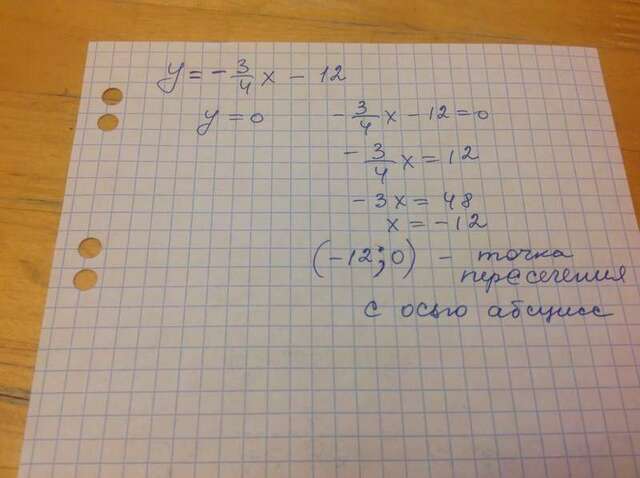 y = -3/4 x - 12
y = 0 -3/4 x - 12 = 0
-3/4 x = 12
-3x = 48
x = -12
(-12; 0) - точка
пересечения
с осью абсцисс